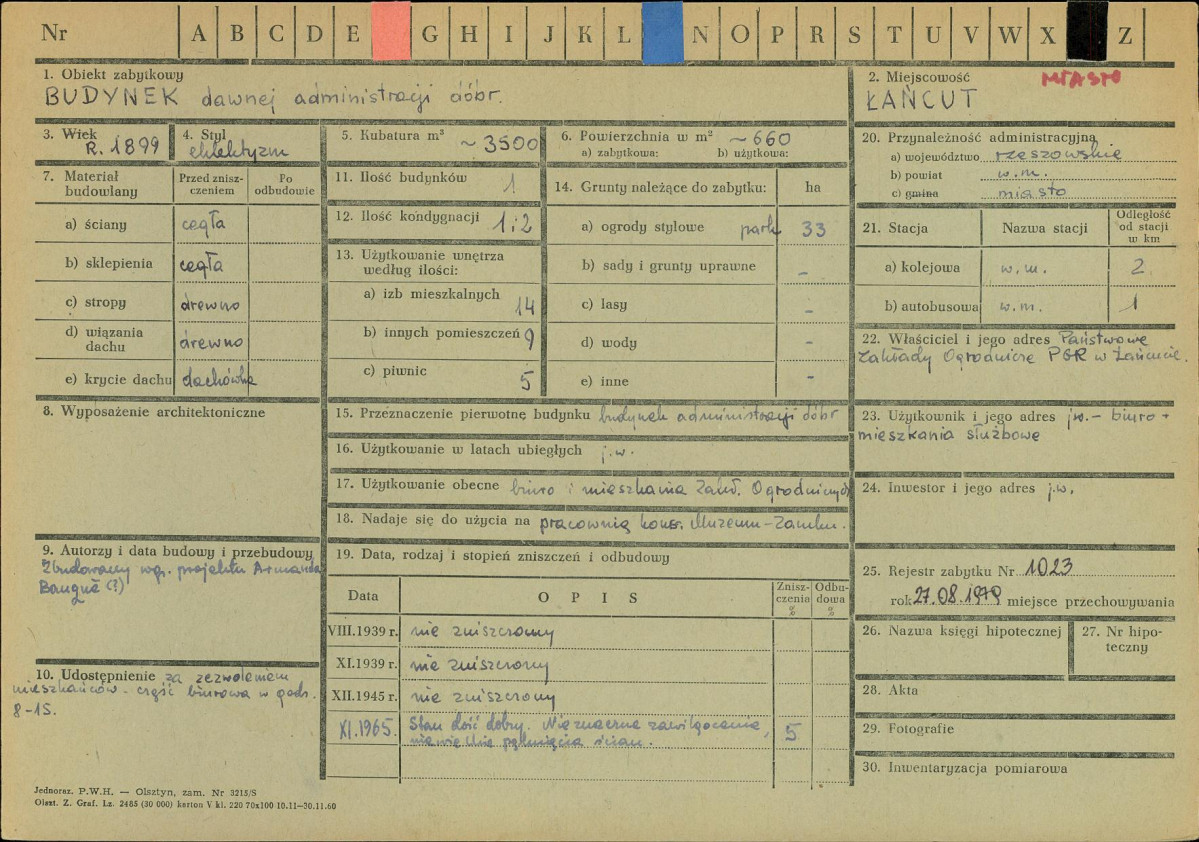 Nr A B C D E G H I J K L N O P R S T U V W X Z
1. Obiekt zabytkowy
BUDYNEK dawnej administracji dóbr.
2. Miejscowość MIASTO
ŁAŃCUT
3. Wiek
R. 1899
4. Styl
eklektyzm
5. Kubatura m³ ~3500
6. Powierzchnia w m² ~660
a) zabytkowa: b) użytkowa:
7. Materiał budowlany
Przed zniszczeniem
Po odbudowie
a) ściany cegła
b) sklepienia cegła
c) stropy drewno
d) wiązania dachu drewno
e) krycie dachu dachówka
8. Wyposażenie architektoniczne
9. Autorzy i data budowy i przebudowy
Zbudowany wg. projektu Armanda
Bauqué (?)
10. Udostępnienie za zezwoleniem
mieszkańców - część biurowa w godz.
8-15.
11. Ilość budynków 1
12. Ilość kondygnacji 1 i 2
13. Użytkowanie wnętrza
według ilości:
a) izb mieszkalnych 14
b) innych pomieszczeń 9
c) piwnic 5
14. Grunty należące do zabytku: ha
a) ogrody stylowe park 33
b) sady i grunty uprawne -
c) lasy -
d) wody -
e) inne -
15. Przeznaczenie pierwotne budynku budynek administracji dóbr
16. Użytkowanie w latach ubiegłych j.w.
17. Użytkowanie obecne biuro i mieszkania Zakł. Ogrodniczych
18. Nadaje się do użycia na pracownię kons. Muzeum-Zamku.
19. Data, rodzaj i stopień zniszczeń i odbudowy
Data OPIS Zniszczenia % Odbudowa %
VIII.1939 r. nie zniszczony
XI.1939 r. nie zniszczony
XII.1945 r. nie zniszczony
XI.1965. Stan dość dobry. Nieznaczne zawilgocenie,
niewielkie pęknięcia ścian. 5
20. Przynależność administracyjna
a) województwo rzeszowskie
b) powiat w.m.
c) gmina miasto
21. Stacja Nazwa stacji Odległość od stacji w km
a) kolejowa w.m. 2
b) autobusowa w.m. 1
22. Właściciel i jego adres Państwowe
Zakłady Ogrodnicze PGR w Łańcucie.
23. Użytkownik i jego adres j.w. - biuro +
mieszkania służbowe
24. Inwestor i jego adres j.w.
25. Rejestr zabytku Nr 1023
rok 27.08.1979 miejsce przechowywania
26. Nazwa księgi hipotecznej
27. Nr hipoteczny
28. Akta
29. Fotografie
30. Inwentaryzacja pomiarowa
Jednoraz. P.W.H. — Olsztyn, zam. Nr 3215/S
Olszt. Z. Graf. Lz. 2485 (30 000) karton V kl. 220 70x100 10.11—30.11.60